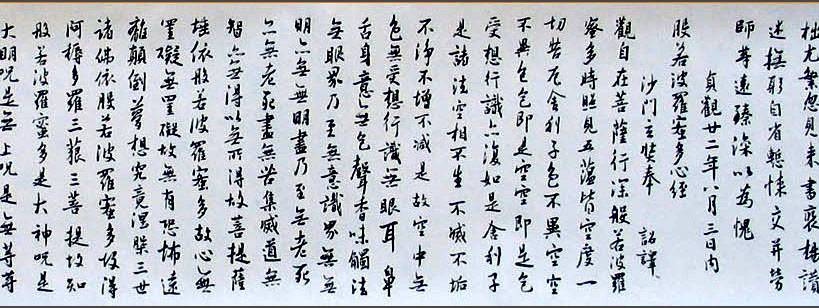 拙尤繁忽見來書褒揚讚
述撫躬自省慙悚交并勞
師等遠臻深以為愧
貞觀廿二年八月三日內
般若波羅蜜多心經
沙門玄奘奉 詔譯
觀自在菩薩行深般若波羅
蜜多時照見五蘊皆空度一
切苦厄舍利子色不異空空
不異色色即是空空即是色
受想行識亦復如是舍利子
是諸法空相不生不滅不垢
不淨不增不減是故空中無
色無受想行識無眼耳鼻
舌身意無色聲香味觸法
無眼界乃至無意識界無無
明亦無無明盡乃至無老死
亦無老死盡無苦集滅道無
智亦無得以無所得故菩提薩
埵依般若波羅蜜多故心無
罣礙無罣礙故無有恐怖遠
離顛倒夢想究竟涅槃三世
諸佛依般若波羅蜜多故得
阿耨多羅三藐三菩提故知
般若波羅蜜多是大神呪是
大明呪是無上呪是無等等